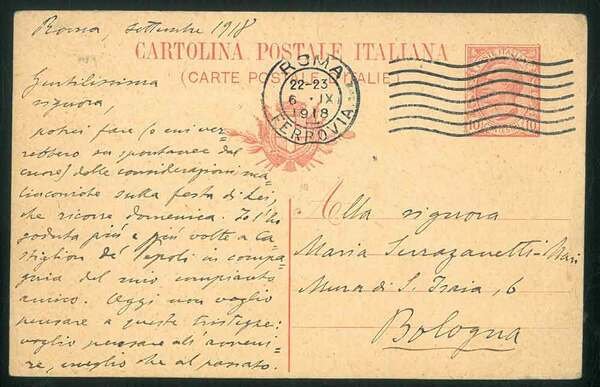 Roma settembre 1918
CARTOLINA POSTALE ITALIANA
(CARTE POSTALE D'ITALIE)
ROMA
22-23
6 · IX
1918
FERROVIA
Gentilissima
signora,
potrei fare (o mi ver=
rebbero su spontanee dal
cuore) delle considerazioni ma=
linconiche sulla festa di Lei,
che ricorre domenica. Io l'ho
goduta più e più volte a Ca=
stiglion de' Pepoli in compa=
gnia del mio compianto
amico. Oggi non voglio
pensare a queste tristezze:
voglio pensare all'avveni=
re, meglio che al passato.
Alla signora
Maria Serrazanetti-
Mura di S. Isaia, 6
Bologna